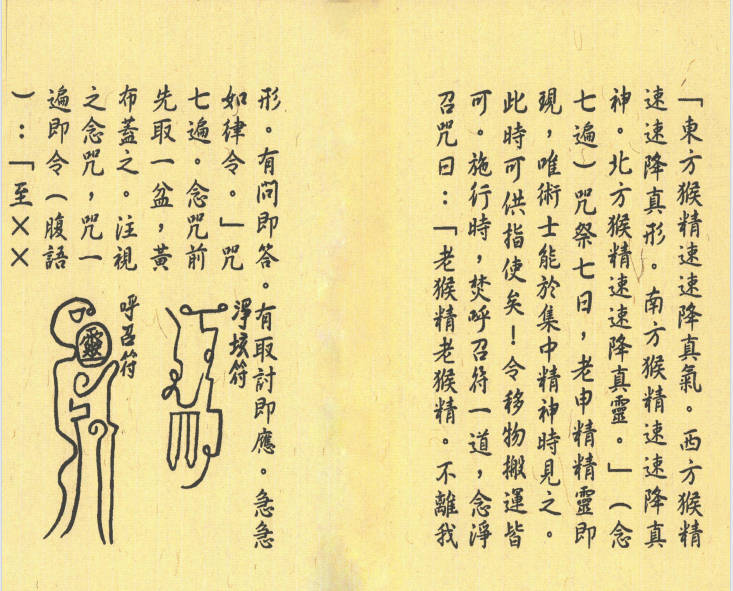 「東方猴精速速降真氣。西方猴精
速速降真形。南方猴精速速降真
神。北方猴精速速降真靈。」(念
七遍)咒祭七日,老申精精靈即
現,唯術士能於集中精神時見之。
此時可供指使矣!令移物搬運皆
可。施行時,焚呼召符一道,念淨
召咒曰:「老猴精老猴精。不離我
形。有問即答。有取討即應。急急
如律令。」咒
七遍。念咒前
先取一盆,黃
布蓋之。注視
之念咒,咒一
遍即令(腹語
):「至××
淨垓符
呼召符
靈